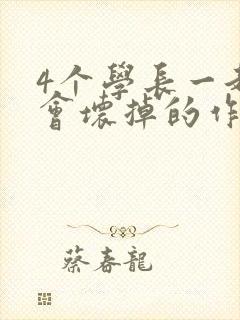 4个學長一
會壞掉的作
蔡春龍